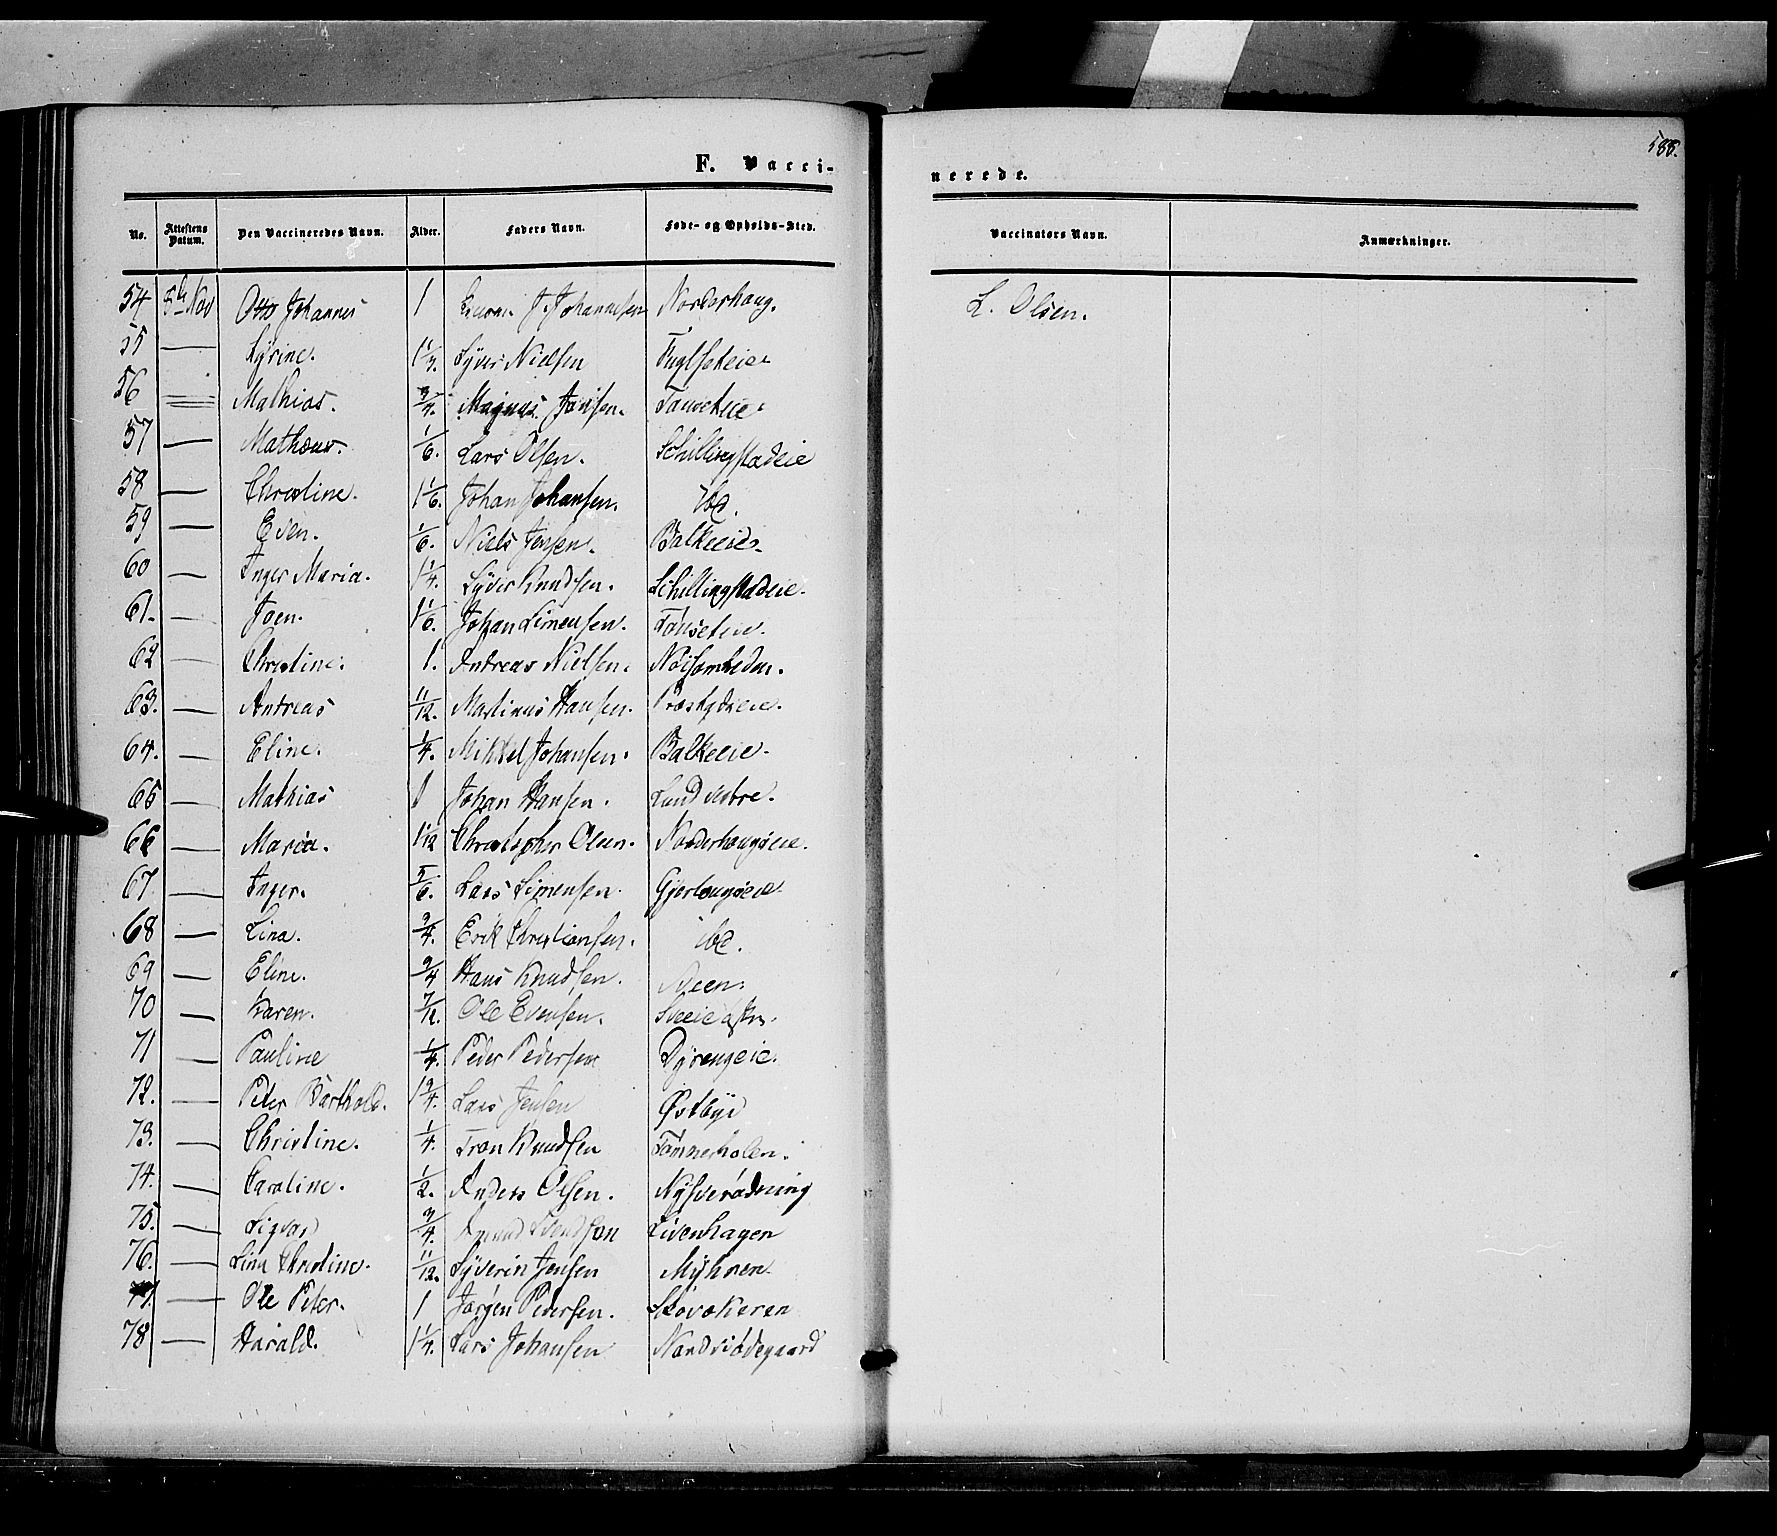 588.
F. Vacci-
nerede.
No. Attestens Datum. Den Vaccineredes Navn. Alder. Faders Navn. Føde- og Opholds-Sted. Vaccinators Navn. Anmærkninger.
54 5te Nov Otto Johannes 1 J. Johannesen Norderhaug. L. Olsen.
55 — Syrine. 1 1/3. Syver Nielsen Fuglseteie
56 — Mathias. 3/4. Magnus Jonsen. Tønseteie.
57 — Matheus. 1/6. Lars Olsen. Schillingstadeie
58 — Christine. 1 1/6. Johan Johansen. ibd.
59 — Even. 1/6. Niels Jensen. Balkeeie.
60 — Inger Maria. 1 1/4. Syver Knudsen. Schillingstadeie.
61. — Joen. 1 1/6. Johan Simensen. Tønseteie.
62 — Christine. 1. Andreas Nielsen. Nøisomheden.
63. — Andreas 11/12. Martinus Hansen. Præstgdseie.
64. — Eline. 1/4. Mikkel Johansen. Balkeeie.
65 — Mathias 1 Johan Hansen. Lund vestre.
66 — Maria. 1 1/12 Christopher Olsen. Norderhaugseie.
67 — Inger. 5/6. Lars Simensen. Gjerlaugseie
68 — Lina. 3/4. Erik Christiansen. ibd.
69 — Eline. 3/4 Hans Knudsen. Aeen.
70 — Karen. 7/12. Ole Evensen. Sveeie østre.
71 — Pauline 1/4. Peder Pedersen Dyrengeie.
72. — Peter Barthold. 1 3/4. Lars Jensen Østbye
73. — Christine. 1/4. Tron Knudsen Tømmerholen.
74. — Caroline. 1/2. Anders Olsen. Nysverødning
75. — Sigvar 3/4. Amund Svendsen Livenhagen
76. — Lina Christine. 11/12. Syverin Jensen Myhren
77. — Ole Peter. 1 Jørgen Pedersen. Skovakeren
78 — Harald. 1 1/4. Lars Johansen Nordviødegaard